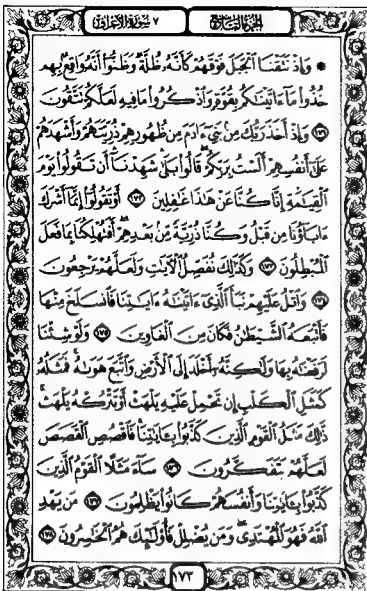 الجزء التاسع ٧ سورة الأعراف
۞ وَإِذْ نَتَقْنَا ٱلْجَبَلَ فَوْقَهُمْ كَأَنَّهُۥ ظُلَّةٌ وَظَنُّوٓا۟ أَنَّهُۥ وَاقِعٌۢ بِهِمْ
خُذُوا۟ مَآ ءَاتَيْنَٰكُم بِقُوَّةٍ وَٱذْكُرُوا۟ مَا فِيهِ لَعَلَّكُمْ تَتَّقُونَ
۝١٧١ وَإِذْ أَخَذَ رَبُّكَ مِنۢ بَنِىٓ ءَادَمَ مِن ظُهُورِهِمْ ذُرِّيَّتَهُمْ وَأَشْهَدَهُمْ
عَلَىٰٓ أَنفُسِهِمْ أَلَسْتُ بِرَبِّكُمْ ۖ قَالُوا۟ بَلَىٰ ۛ شَهِدْنَآ ۛ أَن تَقُولُوا۟ يَوْمَ
ٱلْقِيَٰمَةِ إِنَّا كُنَّا عَنْ هَٰذَا غَٰفِلِينَ ۝١٧٢ أَوْ تَقُولُوٓا۟ إِنَّمَآ أَشْرَكَ
ءَابَآؤُنَا مِن قَبْلُ وَكُنَّا ذُرِّيَّةً مِّنۢ بَعْدِهِمْ ۖ أَفَتُهْلِكُنَا بِمَا فَعَلَ
ٱلْمُبْطِلُونَ ۝١٧٣ وَكَذَٰلِكَ نُفَصِّلُ ٱلْـَٔايَٰتِ وَلَعَلَّهُمْ يَرْجِعُونَ
۝١٧٤ وَٱتْلُ عَلَيْهِمْ نَبَأَ ٱلَّذِىٓ ءَاتَيْنَٰهُ ءَايَٰتِنَا فَٱنسَلَخَ مِنْهَا
فَأَتْبَعَهُ ٱلشَّيْطَٰنُ فَكَانَ مِنَ ٱلْغَاوِينَ ۝١٧٥ وَلَوْ شِئْنَا
لَرَفَعْنَٰهُ بِهَا وَلَٰكِنَّهُۥٓ أَخْلَدَ إِلَى ٱلْأَرْضِ وَٱتَّبَعَ هَوَىٰهُ ۚ فَمَثَلُهُۥ
كَمَثَلِ ٱلْكَلْبِ إِن تَحْمِلْ عَلَيْهِ يَلْهَثْ أَوْ تَتْرُكْهُ يَلْهَث ۚ
ذَّٰلِكَ مَثَلُ ٱلْقَوْمِ ٱلَّذِينَ كَذَّبُوا۟ بِـَٔايَٰتِنَا ۚ فَٱقْصُصِ ٱلْقَصَصَ
لَعَلَّهُمْ يَتَفَكَّرُونَ ۝١٧٦ سَآءَ مَثَلًا ٱلْقَوْمُ ٱلَّذِينَ
كَذَّبُوا۟ بِـَٔايَٰتِنَا وَأَنفُسَهُمْ كَانُوا۟ يَظْلِمُونَ ۝١٧٧ مَن يَهْدِ
ٱللَّهُ فَهُوَ ٱلْمُهْتَدِى ۖ وَمَن يُضْلِلْ فَأُو۟لَٰٓئِكَ هُمُ ٱلْخَٰسِرُونَ ۝١٧٨
١٧٣